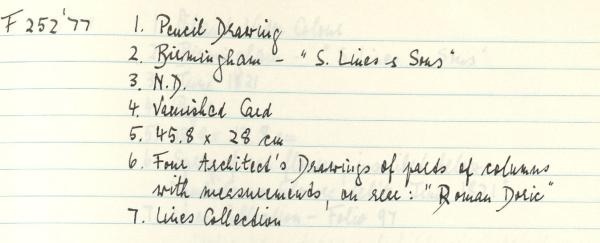 F 252'77 1. Pencil Drawing
2. Birmingham - "S. Lines & Sons"
3. N.D.
4. Varnished Card
5. 45.8 x 28 cm
6. Four Architect's Drawings of parts of columns
with measurements, on rec: "Roman Doric"
7. Lines Collection